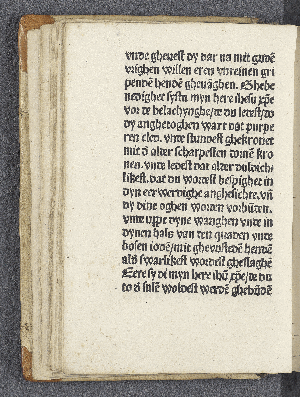 vnde gheuest dy dar na mit gudē
vrighen willen eren vnreinen gri
pendē hendē gheuāghen. Ghebe
nedighet systu myn here ihesu xp̄e
vor de belachynghe/de du ledest/do
dy anghetoghen wart dat purpe
ren cled. vnde stundest ghekronet
mit d̄ alder scharpesten dornē kro
nen. vnde ledest dat alder duldich
likest. dat du wordest bespighet in
dyn eerwerdighe anghesichte. vn̄
dy dine oghen worden vorbūden.
vnde vppe dyne wanghen vnde in
dynen hals van den quaden vnde
bosen ioden/mit ghevusteden hendē
als swarlikest wordest gheslaghē
Eere sy di myn here ihū xp̄e/de du
to d̄ sulē woldest werdē ghebūdē